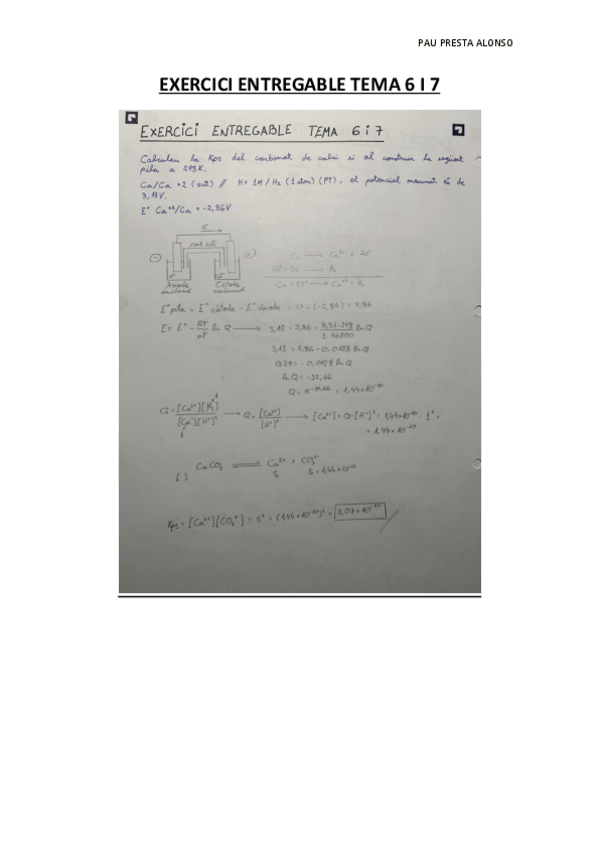 PAU PRESTA ALONSO
EXERCICI ENTREGABLE TEMA 6 I 7
EXERCICI ENTREGABLE TEMA 6 i 7
Calculeu la Kps del carbonat de calci si al construir la següent
pila a 298K.
Ca/Ca+2 (sat) // H+ 1M/H2 (1 atm) (Pt), el potencial mesurat és de
3,15V.
E° Ca+2/Ca = -2,86V
Ca → Ca2+ + 2e-
→ H2
Ca + 2H+ → Ca2+ + H2
Ànode Càtode
E° pila = E° càtode - E° ànode = 0 - (-2,86) = 2,86
E = E° - RT/nF ln Q → 3,15 = 2,86 - 8,31·298/2·96500 ln Q
3,15 = 2,86 - 0,0128 ln Q
0,29 = -0,0128 ln Q
ln Q = -22,66
Q = e-22,66 = 1,44×10-10
Q = [Ca2+][H2]/[Ca][H+]2 → Q = [Ca2+]/[H+]2 → [Ca2+] = Q·[H+]2 = 1,44×10-10 · 12 =
= 1,44×10-10
CaCO3 ⇌ Ca2+ + CO32-
[ ] S S = 1,44×10-10
Kps = [Ca2+][CO32-] = S2 = (1,44×10-10)2 = 2,07×10-20